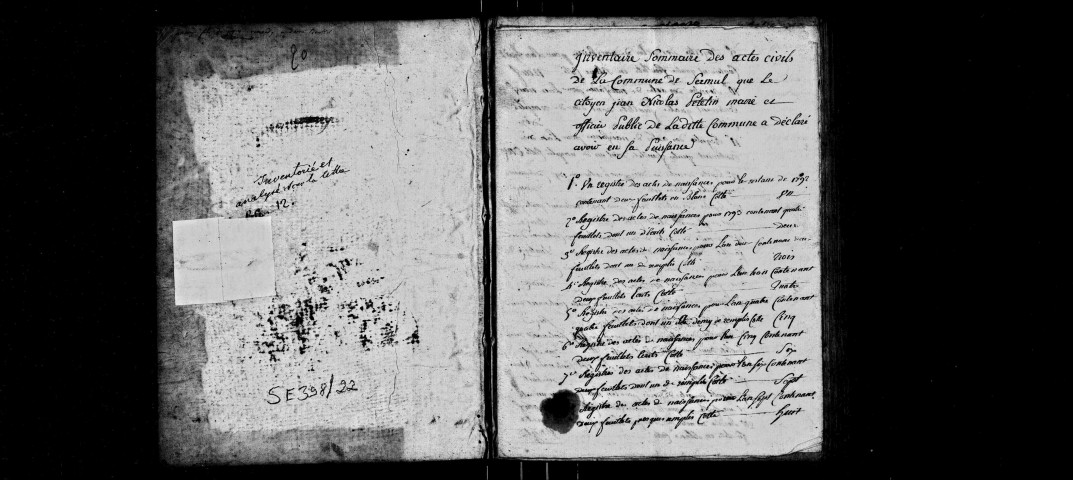 20
Inventorié et
analysé sous la cotte
12.
5E398/22
Inventaire Sommaire des actes civils
de La Commune de Sermul que Le
citoyen jean Nicolas Petetin maire et
officier Public de Laditte Commune a déclaré
avoir en sa Puissance
1º. Un registre des actes de naissances pour le restans de 1792
contenant deux feuillets en blanc Cotté Un
2º Registre des actes de naissances pour 1793 contenant quatre
feuillets dont un d'écrits Cotté deux
3º Registre des actes de naissances pour Lan deux Contenant deux
feuillets dont un de remplis Cotté trois
4º Registre des actes de naissances pour Lan trois Contenant
deux feuillets Ecrits Cotté quatre
5º Registre des actes de naissances pour Lan quatre Contenant
quatre feuillets dont un et demy de remplis Cotté Cinq
6º Registre des actes de naissances pour Lan Cinq Contenant
deux feuillets Ecrits Cotté Six
7º Registre des actes de naissances pour Lan Six Contenant
deux feuillets dont un de remplis Cotté Sept
Registre des actes de naissances pour Lan Sept Contenant
deux feuillets presque remplis Cotté huit